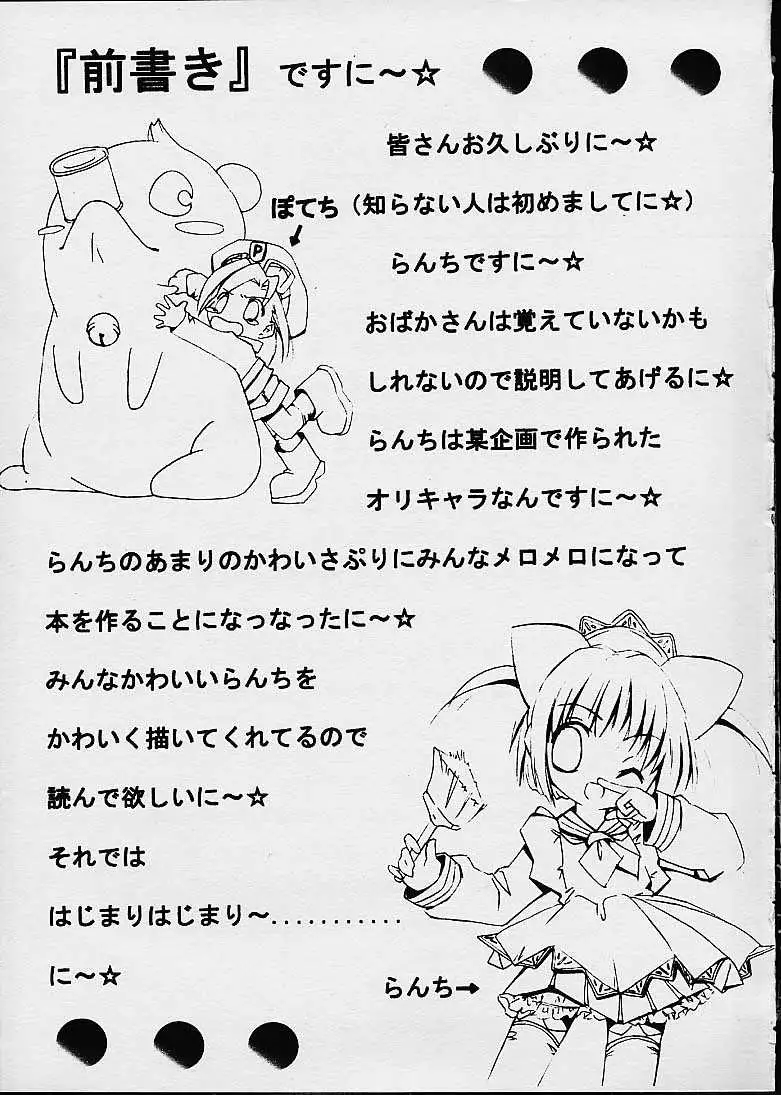 『前書き』ですに～☆
皆さんお久しぶりに～☆
ぽてち
↓
（知らない人は初めましてに☆）
らんちですに～☆
P
おばかさんは覚えていないかも
しれないので説明してあげるに☆
らんちは某企画で作られた
オリキャラなんですに～☆
らんちのあまりのかわいさぷりにみんなメロメロになって
本を作ることになっなったに～☆
みんなかわいいらんちを
かわいく描いてくれてるので
読んで欲しいに～☆
それでは
はじまりはじまり～...........
に～☆
らんち→